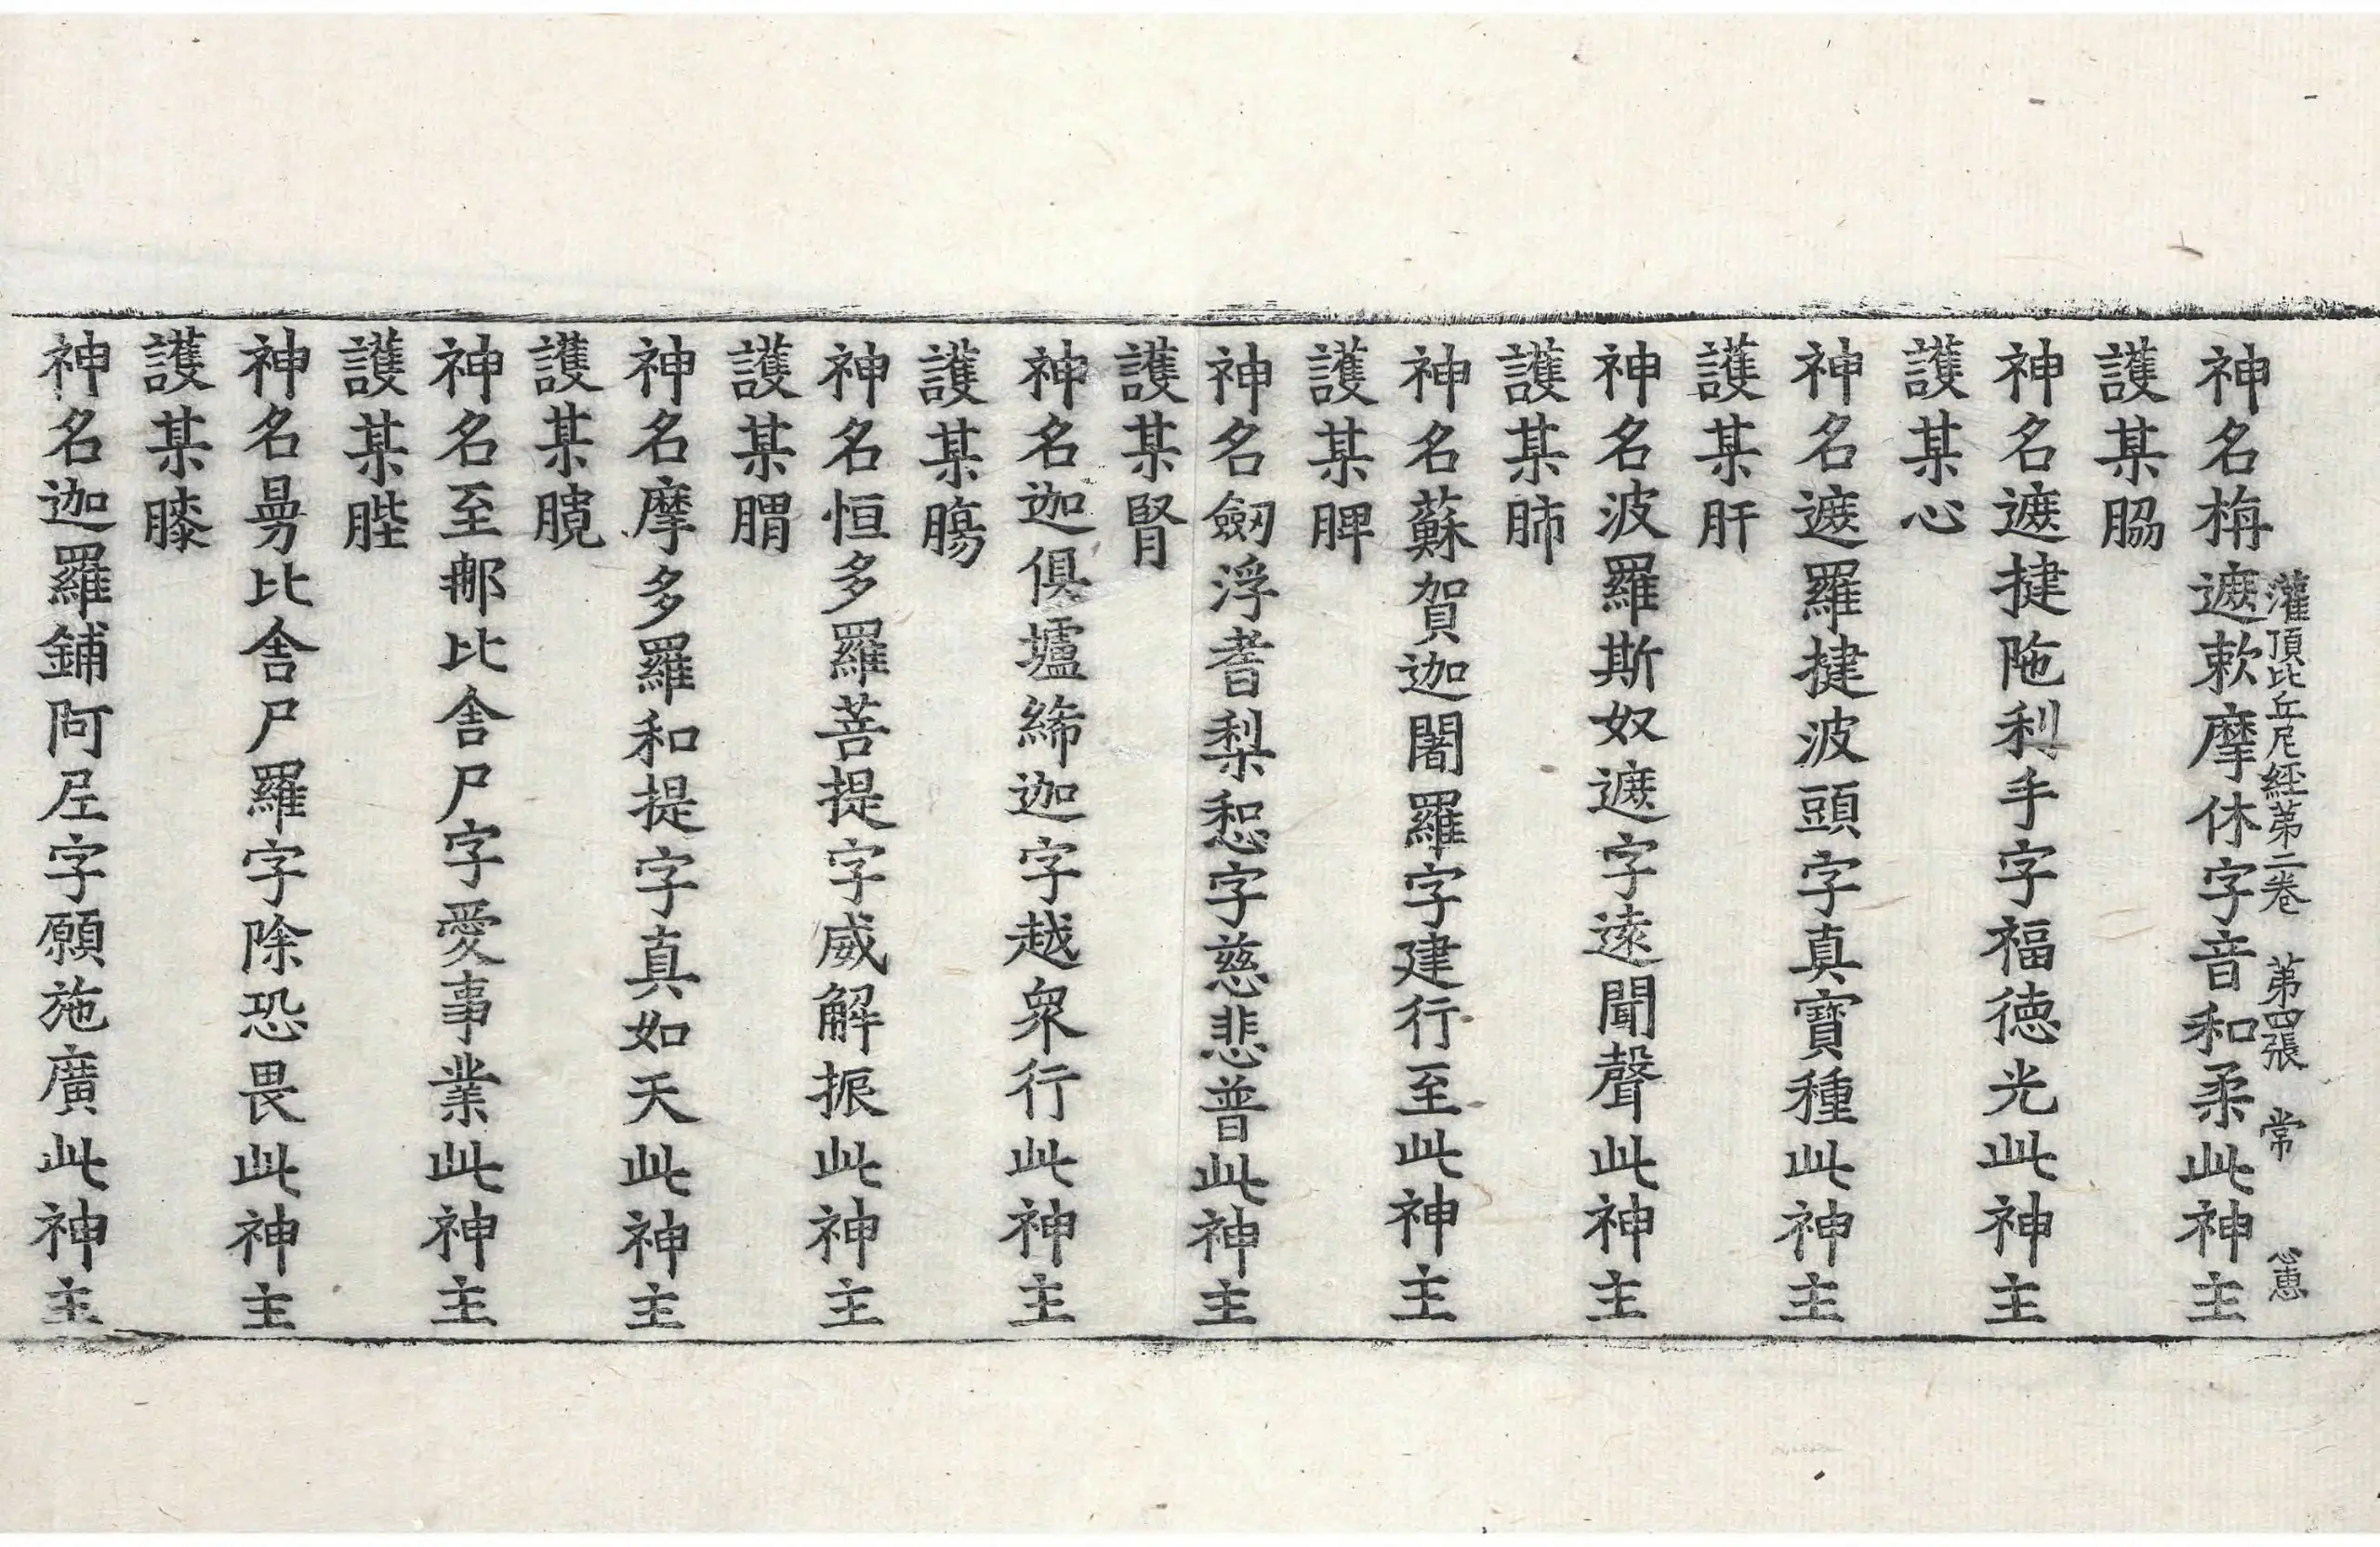 神名栴遮敕摩休字音和柔此神主
灌頂比丘尼經第二卷 第四張 常 心惠
護某脇
神名遮揵陁利手字福德光此神主
護某心
神名遮羅揵波頭字真寶種此神主
護某肝
神名波羅斯奴遮字遠聞聲此神主
護某肺
神名蘇賀迦闍羅字建行至此神主
護某脾
神名劔浮耆梨惒字慈悲普此神主
護某腎
神名迦俱壚締迦字越衆行此神主
護某膓
神名恒多羅菩提字威解振此神主
護某胃
神名摩多羅和提字真如天此神主
護某膔
神名至那比舍尸字愛事業此神主
護某䏶
神名曼比舍尸羅字除恐畏此神主
護某膝
神名迦羅鋪阿𡰱字願施廣此神主